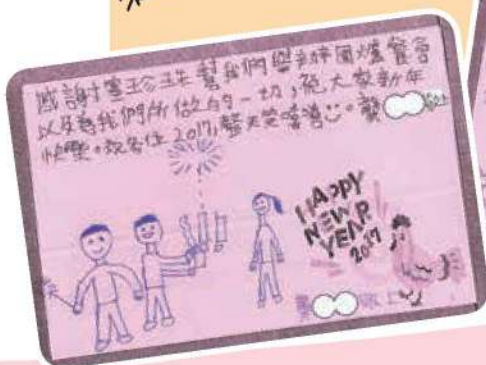 感謝塞珍珠幫我們舉辦圍爐餐會
以及為我們所做的一切,祝大家新年
快樂。祝各位2017,整天笑嘻嘻
HAPPY
NEW
YEAR
2017